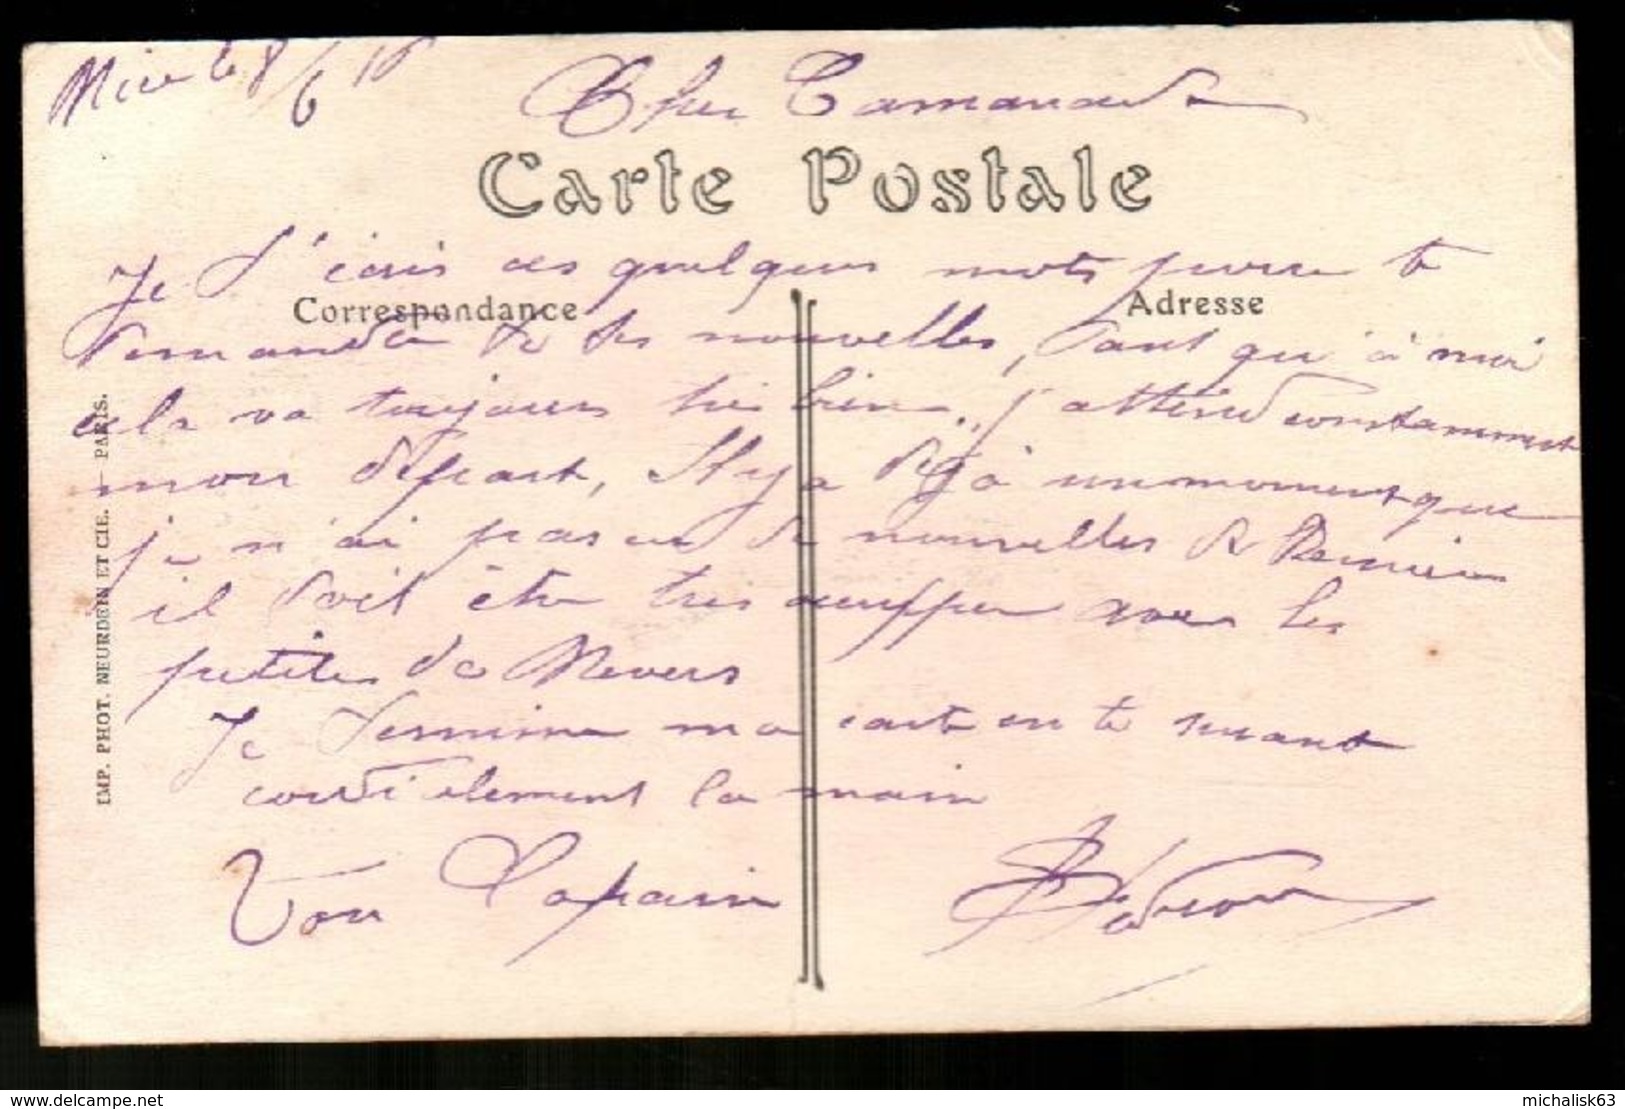 Nice le 8/6 16
Cher Camarade
Carte Postale
Je t'écris ces quelques mots pour te
Correspondance
Adresse
demander de tes nouvelles, tant qu'à moi
cela va toujours très bien, j'attend constamment
mon départ, Il y a déjà un moment que
je n'ai pas eu de nouvelles de
il doit être très occupper avec les
petites de Nevers
Je termine ma carte en te serrant
cordialement la main
Ton Copain
IMP. PHOT. NEURDEIN ET CIE. — PARIS.
delcampe.net
michalisk63